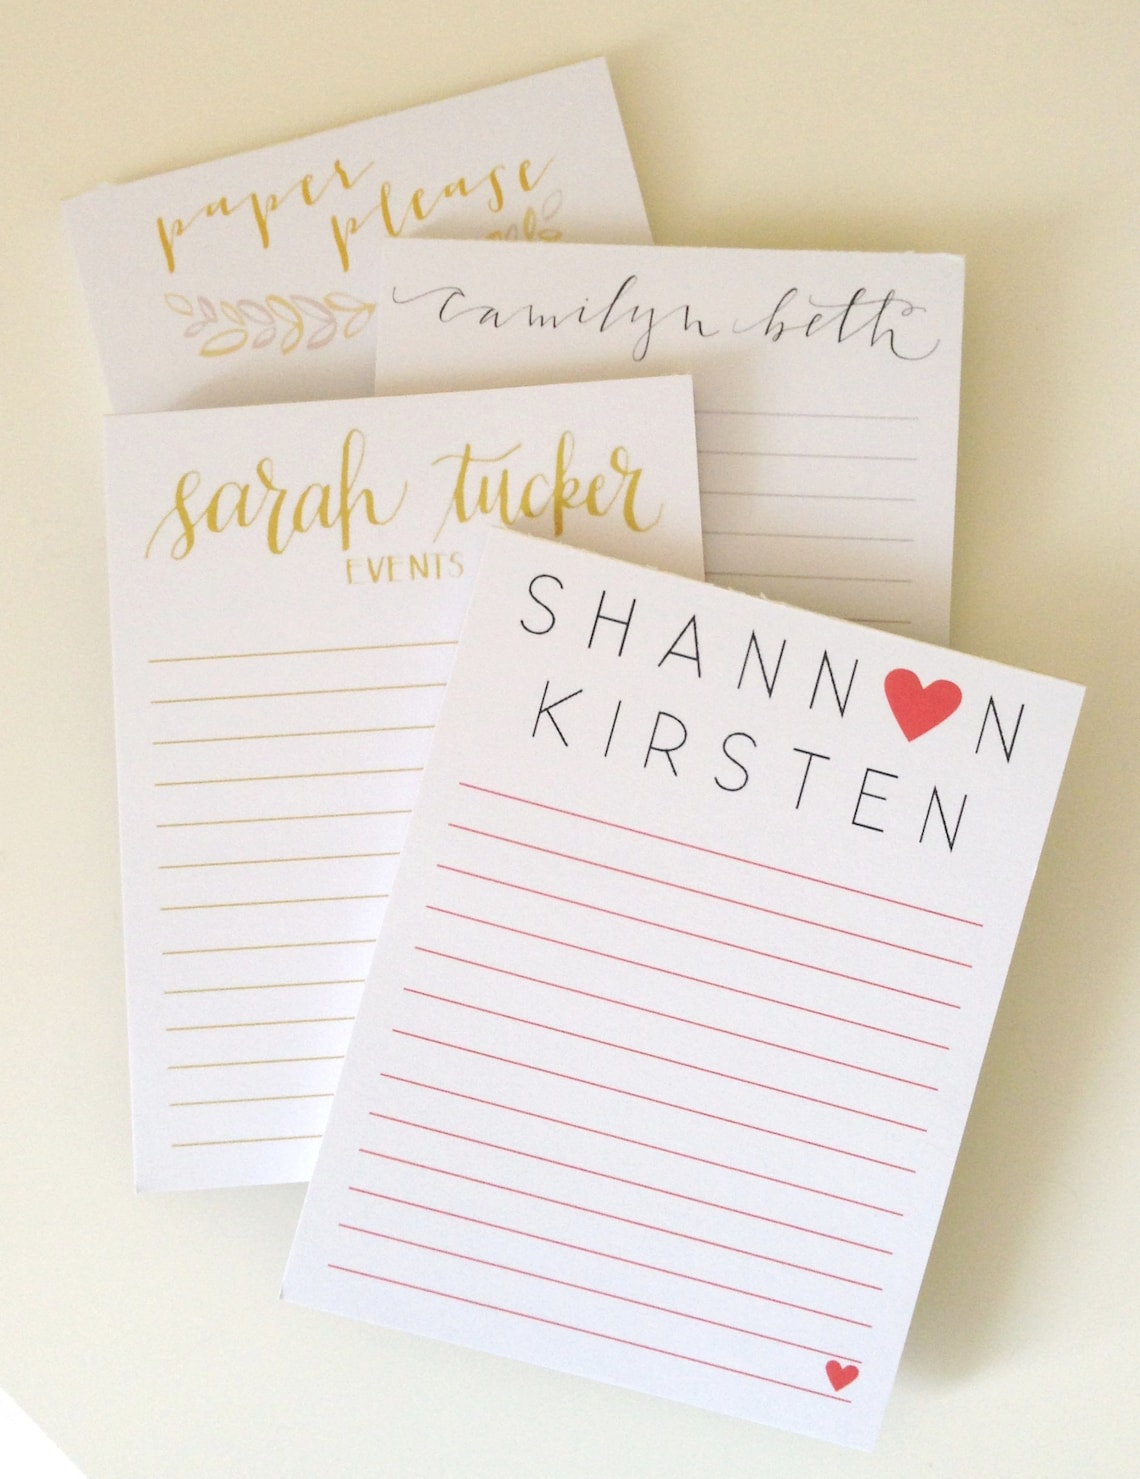 paper
please
camilyn beth
sarah tucker
EVENTS
SHANN♥N
KIRSTEN